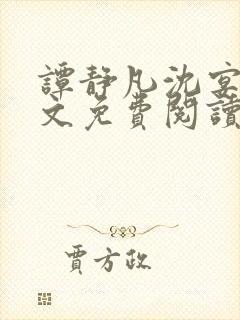 譚靜凡沈宴
文免費閱讀
賈方政